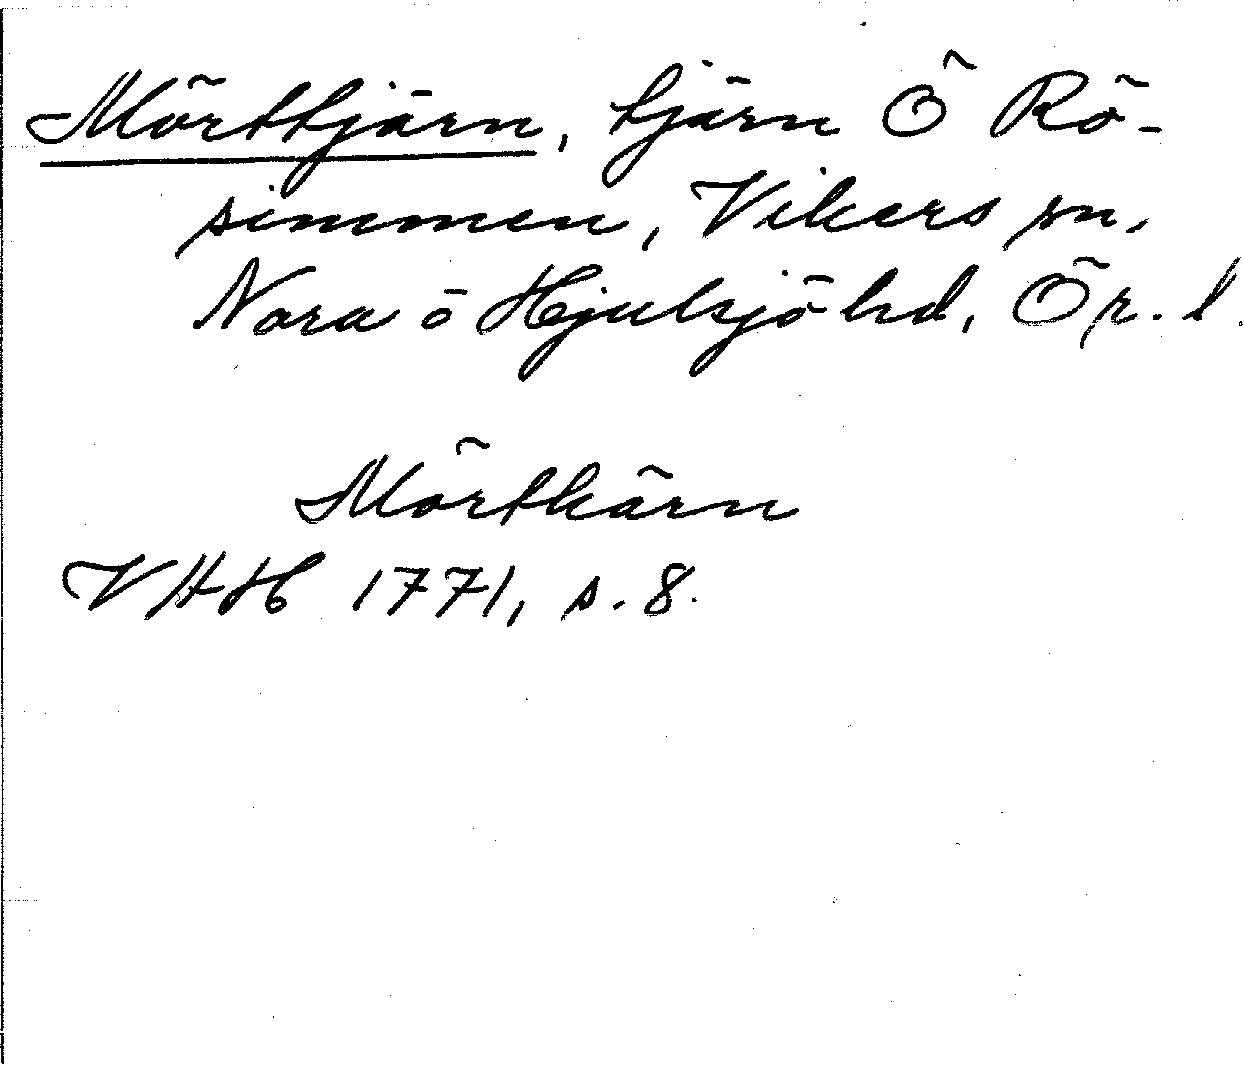 Mörttjärn, tjärn Ö Rö-
simmen, Vikers sn,
Nora o Hjulsjö hd, Ör. l.
Mörtkärn
VHH 1771, s. 8.